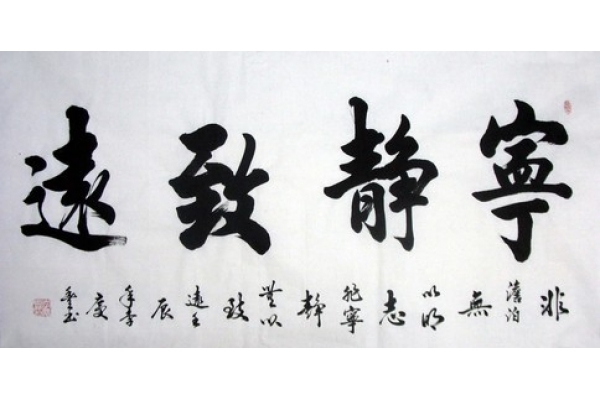 寧静致遠
非澹泊無以明志非寧静無以致遠壬辰年